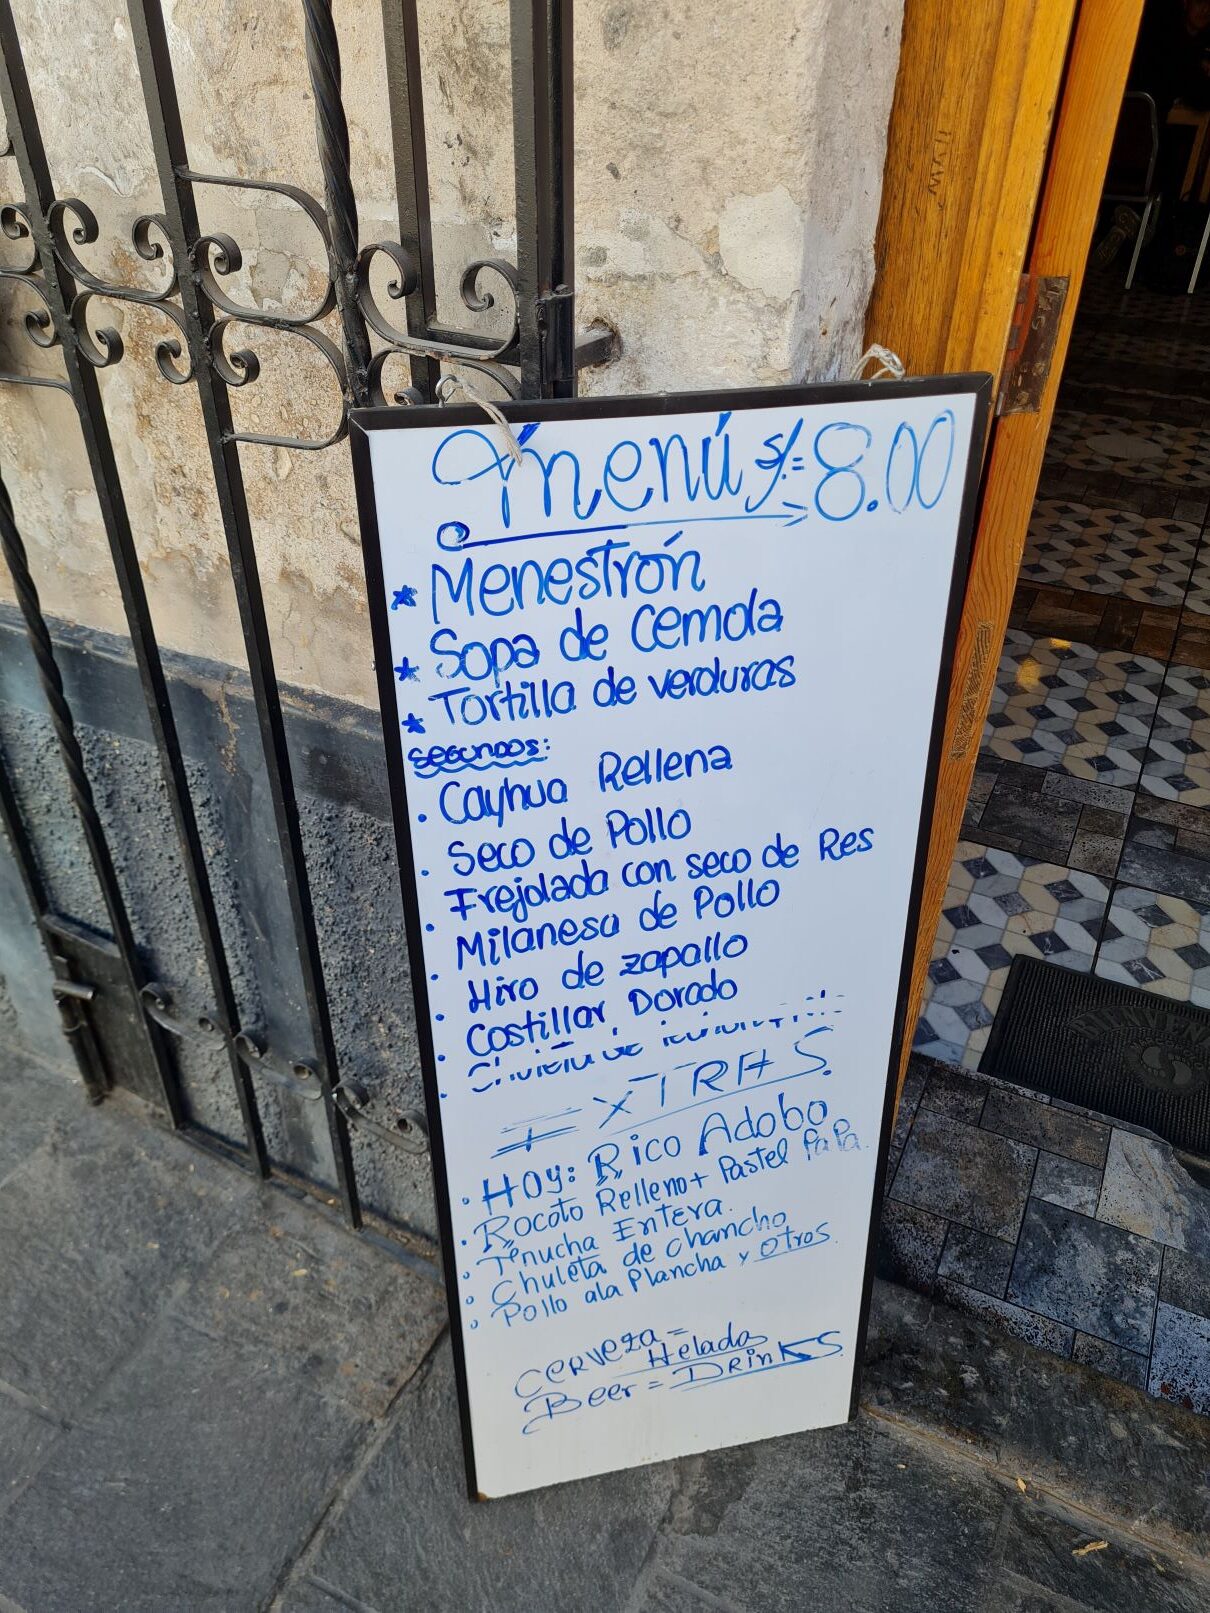 Menú S/.= 8.00
* Menestrón
* Sopa de Cemola
* Tortilla de verduras
SEGUNDOS:
. Cayhua Rellena
. Seco de Pollo
. Frejolada con seco de Res
. Milanesa de Pollo
. Hiro de zapallo
. Costillar Dorado
. Chuleta de
EXTRAS
. Hoy: Rico Adobo
. Rocoto Relleno+ Pastel PaPa.
. Entera.
. Chuleta de chancho
. Pollo ala Plancha y otros.
Cerveza =
Helada
Beer = DRINKS.